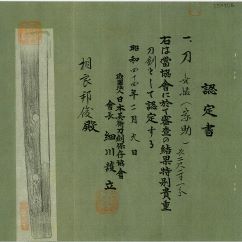 認定書
一、刀 無銘（家助）
右は當協會に於て審査の結果特別貴重
刀劍として認定する
昭和四十四年二月九日
財團法人日本美術刀劍保存協會
會長 細川護立
相良邦俊殿